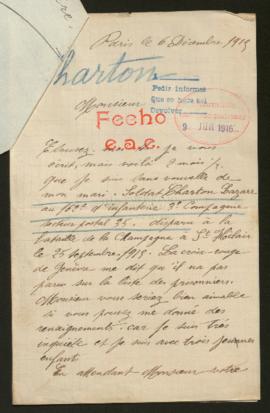 Paris le 6 Décembre 1915
Charton
Monsieur
Pedir informes
Devolver
Fecho
e.a.c.
9 JUN 1916
Excusez je vous
écrit, mais voilà 2 mois ½
que je suis sans nouvelle de
mon mari. Soldat Charton Lazare
au 162e d'Infanterie 3e Compagnie
Secteur postal 25. disparu à la
bataille de la Champagne à St Hilaire
le 25 septembre 1915. La croix-rouge
de Genève me dit qu'il n'a pas
parru sur la liste des prisonniers.
Monsieur vous seriez bien aimable
si vous pouvez me donné des
renseignements. car je suis très
inquiète et je suis avec trois jeunes
enfants
En attendant Monsieur votre